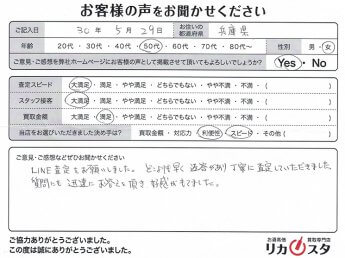 お客様の声をお聞かせください
ご記入日 30年 5月 29日 お住いの都道府県 兵庫県
年齢 20代・30代・40代・50代・60代・70代・80代〜 性別 男・女
ご意見・ご感想を弊社ホームページにお客様の声として掲載させて頂いてもよろしいでしょうか? Yes・No
査定スピード 大満足・満足・やや満足・どちらでもない・やや不満・不満・( )
スタッフ接客 大満足・満足・やや満足・どちらでもない・やや不満・不満・( )
買取金額 大満足・満足・やや満足・どちらでもない・やや不満・不満・( )
当店をお選びいただきました決め手は? 買取金額・対応力・利便性・スピード・その他( )
ご意見・ご感想などぜひお聞かせください
LINE査定をお願いしました。どこよりも早く返答があり丁寧に査定していただきました
質問にも迅速にお答えを頂き好感がもてました。
ご協力ありがとうございました。
この度は誠にありがとうございました。
お酒高価買取専門店
リカスタ